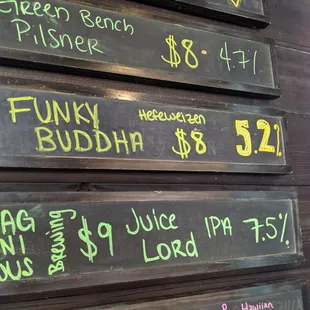 Green Bench
Pilsner $8. 4.7%
FUNKY Hefeweizen
BUDDHA $8 5.2%
AG
NI
OUS Brewing $9 Juice
Lord IPA 7.5%